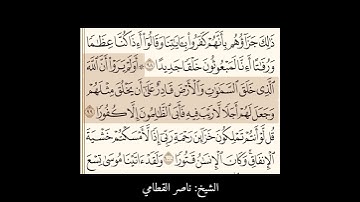 ذَٰلِكَ جَزَآؤُهُم بِأَنَّهُمْ كَفَرُوا۟ بِـَٔايَـٰتِنَا وَقَالُوٓا۟ أَءِذَا كُنَّا عِظَـٰمًا
وَرُفَـٰتًا أَءِنَّا لَمَبْعُوثُونَ خَلْقًا جَدِيدًا ۝٩٨ أَوَلَمْ يَرَوْا۟ أَنَّ ٱللَّهَ
ٱلَّذِى خَلَقَ ٱلسَّمَـٰوَٰتِ وَٱلْأَرْضَ قَادِرٌ عَلَىٰٓ أَن يَخْلُقَ مِثْلَهُمْ
وَجَعَلَ لَهُمْ أَجَلًا لَّا رَيْبَ فِيهِ فَأَبَى ٱلظَّـٰلِمُونَ إِلَّا كُفُورًا ۝٩٩
قُل لَّوْ أَنتُمْ تَمْلِكُونَ خَزَآئِنَ رَحْمَةِ رَبِّىٓ إِذًا لَّأَمْسَكْتُمْ خَشْيَةَ
ٱلْإِنفَاقِ وَكَانَ ٱلْإِنسَـٰنُ قَتُورًا ۝١٠٠ وَلَقَدْ ءَاتَيْنَا مُوسَىٰ تِسْعَ
الشيخ: ناصر القطامي